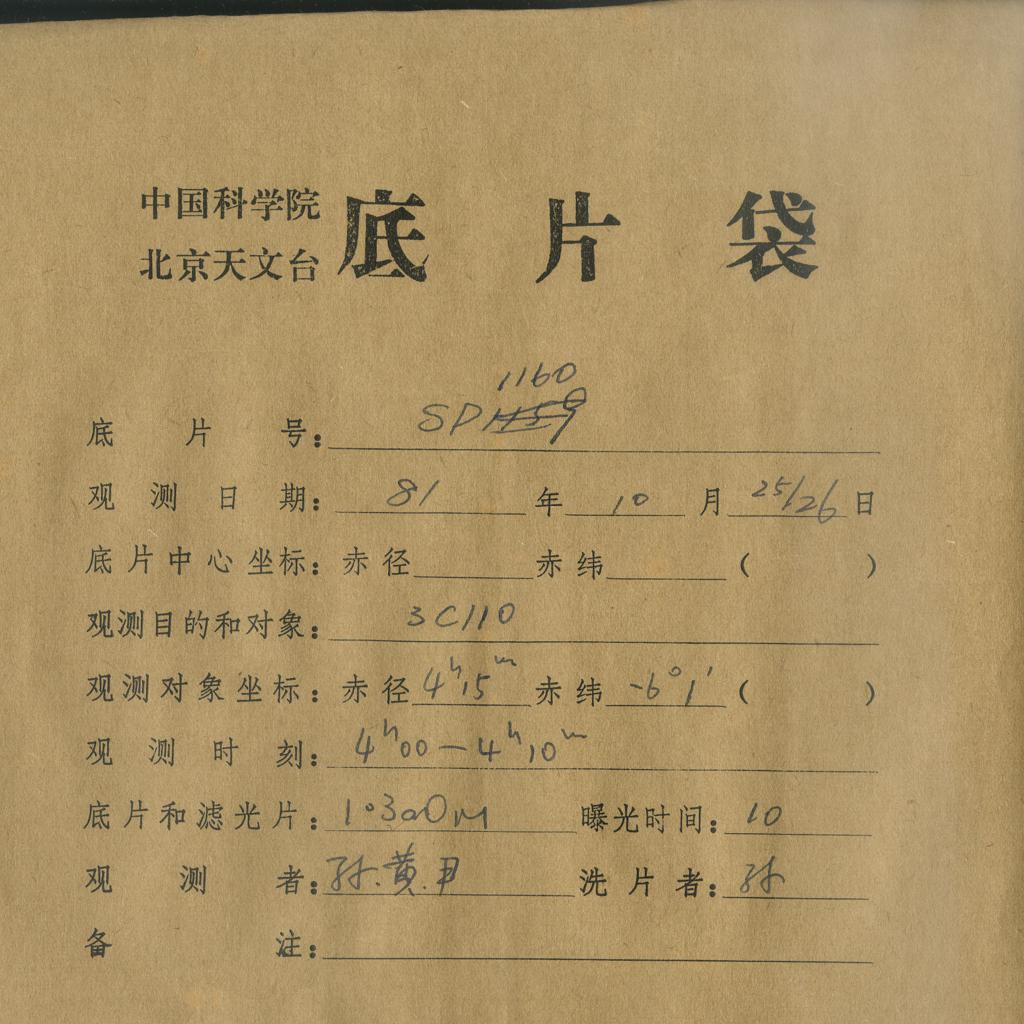 中国科学院
北京天文台
底片袋
1160
底片号：SP1159
观测日期：81年10月25/26日
底片中心坐标：赤径 赤纬 （ ）
观测目的和对象：3C110
观测对象坐标：赤径4h15m 赤纬-6°1′（ ）
观测时刻：4h00—4h10m
底片和滤光片： 曝光时间：10
观测者：孙.黄.尹 洗片者：孙
备注：